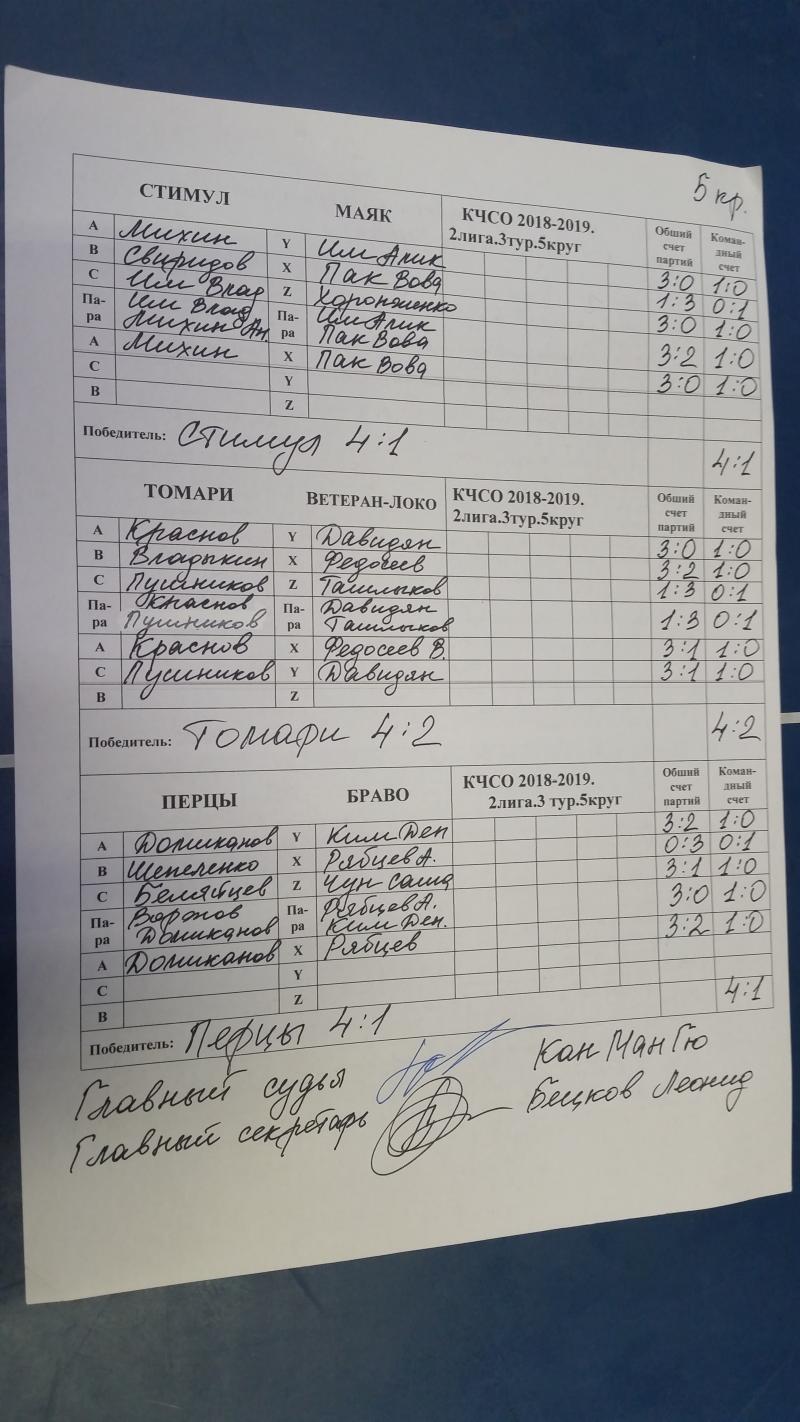 5 кр.
СТИМУЛ МАЯК КЧСО 2018-2019. 2лига.3тур.5круг Общий счет партий Коман-дный счет
A Михин Y Им Алик 3:0 1:0
B Свиридов X Пак Вова 1:3 0:1
C Им Влад Z 3:0 1:0
Па-ра Им Влад Михин Ан. Па-ра Им Алик Пак Вова 3:2 1:0
A Михин X Пак Вова 3:0 1:0
C Y
B Z
Победитель: Стимул 4:1 4:1
ТОМАРИ ВЕТЕРАН-ЛОКО КЧСО 2018-2019. 2лига.3тур.5круг Общий счет партий Коман-дный счет
A Краснов Y Давидян 3:0 1:0
B Владыкин X Федосеев 3:2 1:0
C Пушников Z Ташлыков 1:3 0:1
Па-ра Краснов Пушников Па-ра Давидян Ташлыков 1:3 0:1
A Краснов X Федосеев В. 3:1 1:0
C Пушников Y Давидян 3:1 1:0
B Z
Победитель: Томари 4:2 4:2
ПЕРЦЫ БРАВО КЧСО 2018-2019. 2лига.3 тур.5круг Общий счет партий Коман-дный счет
A Домиканов Y Ким Ден 3:2 1:0
B Шепеленко X Рябцев А. 0:3 0:1
C Беляйцев Z Чун Саша 3:1 1:0
Па-ра Воронов Домиканов Па-ра Рябцев А. Ким Ден. 3:0 1:0
A Домиканов X Рябцев 3:2 1:0
C Y
B Z
Победитель: Перцы 4:1 4:1
Главный судья Кан Ман Гю
Главный секретарь Бецков Леонид